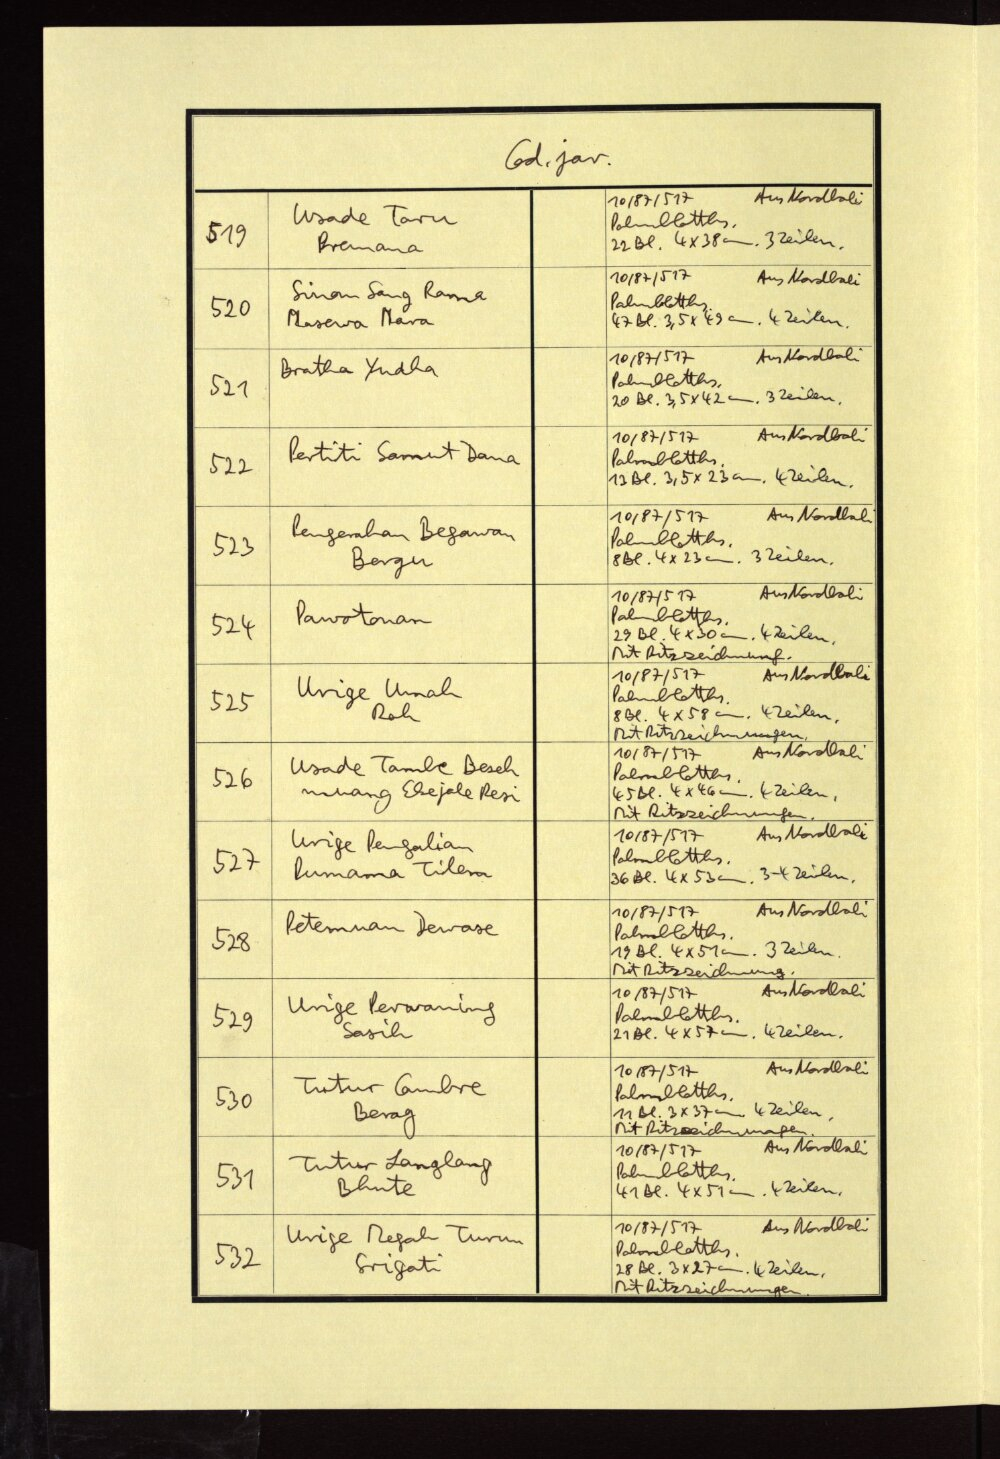 Cod. jav.
519
Usade Taru
Premana
10/87/517 Aus Nordbali
Palmblatths.
22 Bl. 4x38 cm. 3 Zeilen.
520
Sinom Sang Rama
Masewa Mara
10/87/517 Aus Nordbali
Palmblatths.
47 Bl. 3,5x49 cm. 4 Zeilen.
521
Bratha Yudha
10/87/517 Aus Nordbali
Palmblatths.
20 Bl. 3,5x42 cm. 3 Zeilen.
522
Pertiti Samut Dana
10/87/517 Aus Nordbali
Palmblatths.
13 Bl. 3,5x23 cm. 4 Zeilen.
523
Pengerahan Begawan
Bergu
10/87/517 Aus Nordbali
Palmblatths.
8 Bl. 4x23 cm. 3 Zeilen.
524
Pawotonan
10/87/517 Aus Nordbali
Palmblatths.
29 Bl. 4x30 cm. 4 Zeilen.
Mit Ritzzeichnung.
525
Urige Umah
Roh
10/87/517 Aus Nordbali
Palmblatths.
8 Bl. 4x58 cm. 4 Zeilen.
Mit Ritzzeichnungen.
526
Usade Tambe Beseh
muang Ebejole Resi
10/87/517 Aus Nordbali
Palmblatths.
45 Bl. 4x46 cm. 4 Zeilen.
Mit Ritzzeichnungen.
527
Urige Pengalian
Purnama Tilem
10/87/517 Aus Nordbali
Palmblatths.
36 Bl. 4x53 cm. 3-4 Zeilen.
528
Petemuan Dewase
10/87/517 Aus Nordbali
Palmblatths.
19 Bl. 4x51 cm. 3 Zeilen.
Mit Ritzzeichnung.
529
Urige Perwaning
Sasih
10/87/517 Aus Nordbali
Palmblatths.
21 Bl. 4x57 cm. 4 Zeilen.
530
Tutur Cambre
Berag
10/87/517 Aus Nordbali
Palmblatths.
11 Bl. 3x37 cm 4 Zeilen.
Mit Ritzzeichnungen.
531
Tutur Langlang
Bhute
10/87/517 Aus Nordbali
Palmblatths.
41 Bl. 4x51 cm. 4 Zeilen.
532
Urige Megah Turun
Srigati
10/87/517 Aus Nordbali
Palmblatths.
28 Bl. 3x27 cm. 4 Zeilen.
Mit Ritzzeichnungen.